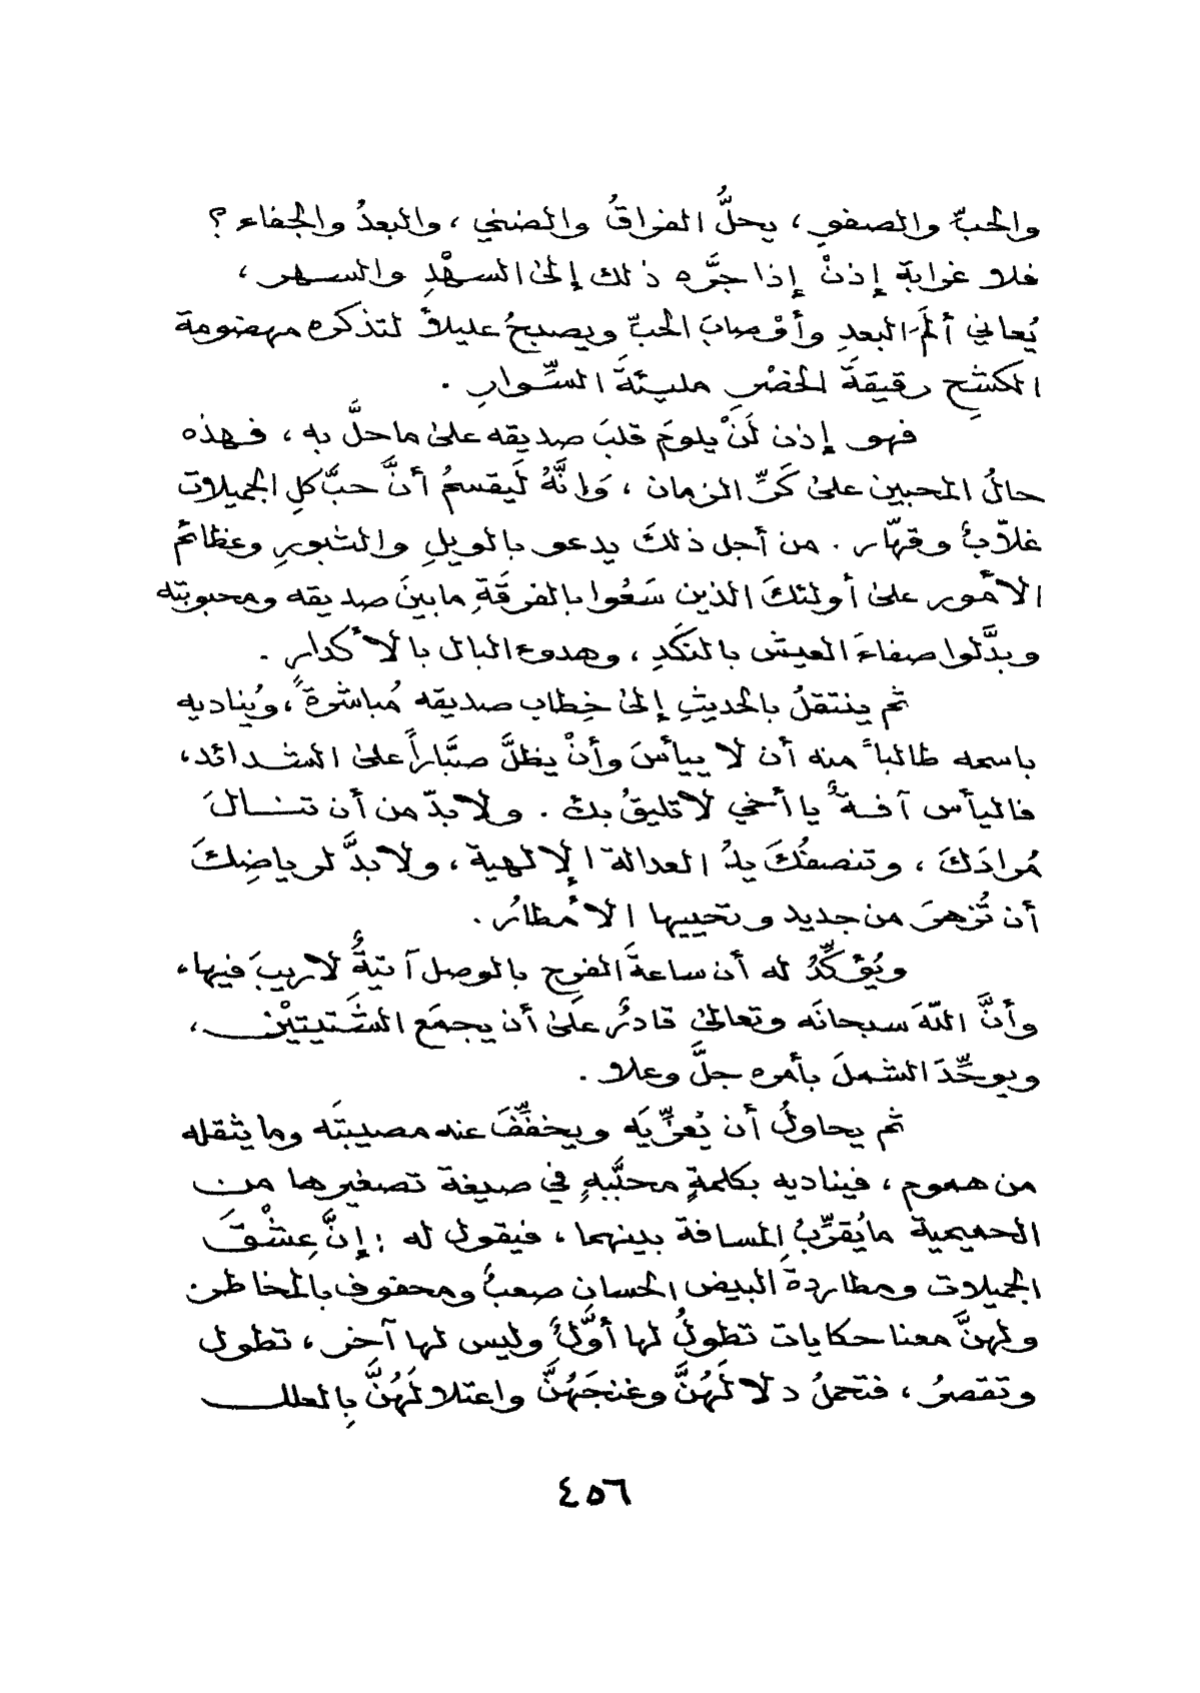 والحبّ والصفوِ ، يحلُّ الفراقُ والضنى ، والبعدُ والجفاء ؟
فلا غرابة إذنْ إذا جرَّه ذلك إلى السهْدِ والسهر ،
يُعاني ألَمَ البعدِ وأوْصابَ الحبّ ويصبحُ عليلاً لتذكره مهضومة
الكشحِ رقيقةَ الخصْرِ مليئةَ السِّوارِ .
فهو إذن لَنْ يلومَ قلبَ صديقه على ما حلَّ به ، فهذه
حالُ المحبين على كَرِّ الزمان ، وَإنَّهُ لَيقسمُ أنَّ حبَّ كلِ الجميلات
غلاّبٌ وقهّار . من أجل ذلكَ يدعو بالويلِ والثبورِ وعظائم
الأمور على أولئكَ الذين سَعُوا بالفرقَةِ ما بينَ صديقه ومحبوبته
وبدَّلوا صفاءَ العيش بالنكَدِ ، وهدوء البال بالأكدارِ .
ثم ينتقلُ بالحديثِ إلى خِطاب صديقه مُباشرةً ، ويُناديه
باسمه طالباً منه أن لا ييأسَ وأنْ يظلَّ صبَّاراً على الشدائد ،
فاليأس آفـةٌ يا أخي لا تليقُ بك . ولا بدّ من أن تنـالَ
مُرادَكَ ، وتنصفُكَ يدُ العدالة الإلهية ، ولا بدَّ لرياضِكَ
أن تُزهىَ من جديد وتحييها الأمطارُ .
ويُؤكِّدُ له أن ساعةَ الفرج بالوصل آتيةٌ لا ريبَ فيها ،
وأنَّ اللّهَ سبحانَه وتعالى قادرٌ عَلى أن يجمَع الشَتيتيْن ،
ويوحِّدَ الشملَ بأمره جلَّ وعلا .
ثم يحاولُ أن يُعزِّيَه ويخفِّفَ عنه مصيبتَه وما يثقله
من هموم ، فيناديه بكلمةٍ محبَّبهٍ في صيغة تصغيرها من
الحميمية ما يُقرِّبُ المسافة بينهما ، فيقول له : إنَّ عِشْقَ
الجميلات ومطاردةَ البيض الحسانِ صعبٌ ومحفوف بالمخاطر.
ولهنَّ معنا حكايات تطولُ لها أوَّلٌ وليس لها آخر ، تطول
وتقصرُ ، فتحملُ دلالَهُنَّ وغنجَهُنَّ واعتلالَهُنَّ بِالعلل
٤٥٦